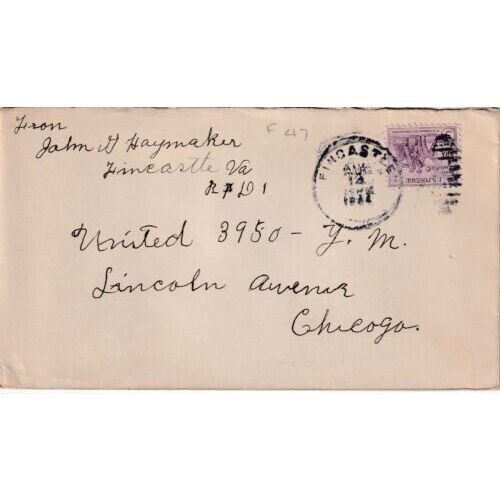 From
John G Haymaker
Fincastle Va
R F D 1
F 47
FINCASTLE
AUG
14
United 3950 - Y. M.
Lincoln Avenue
Chicogo.